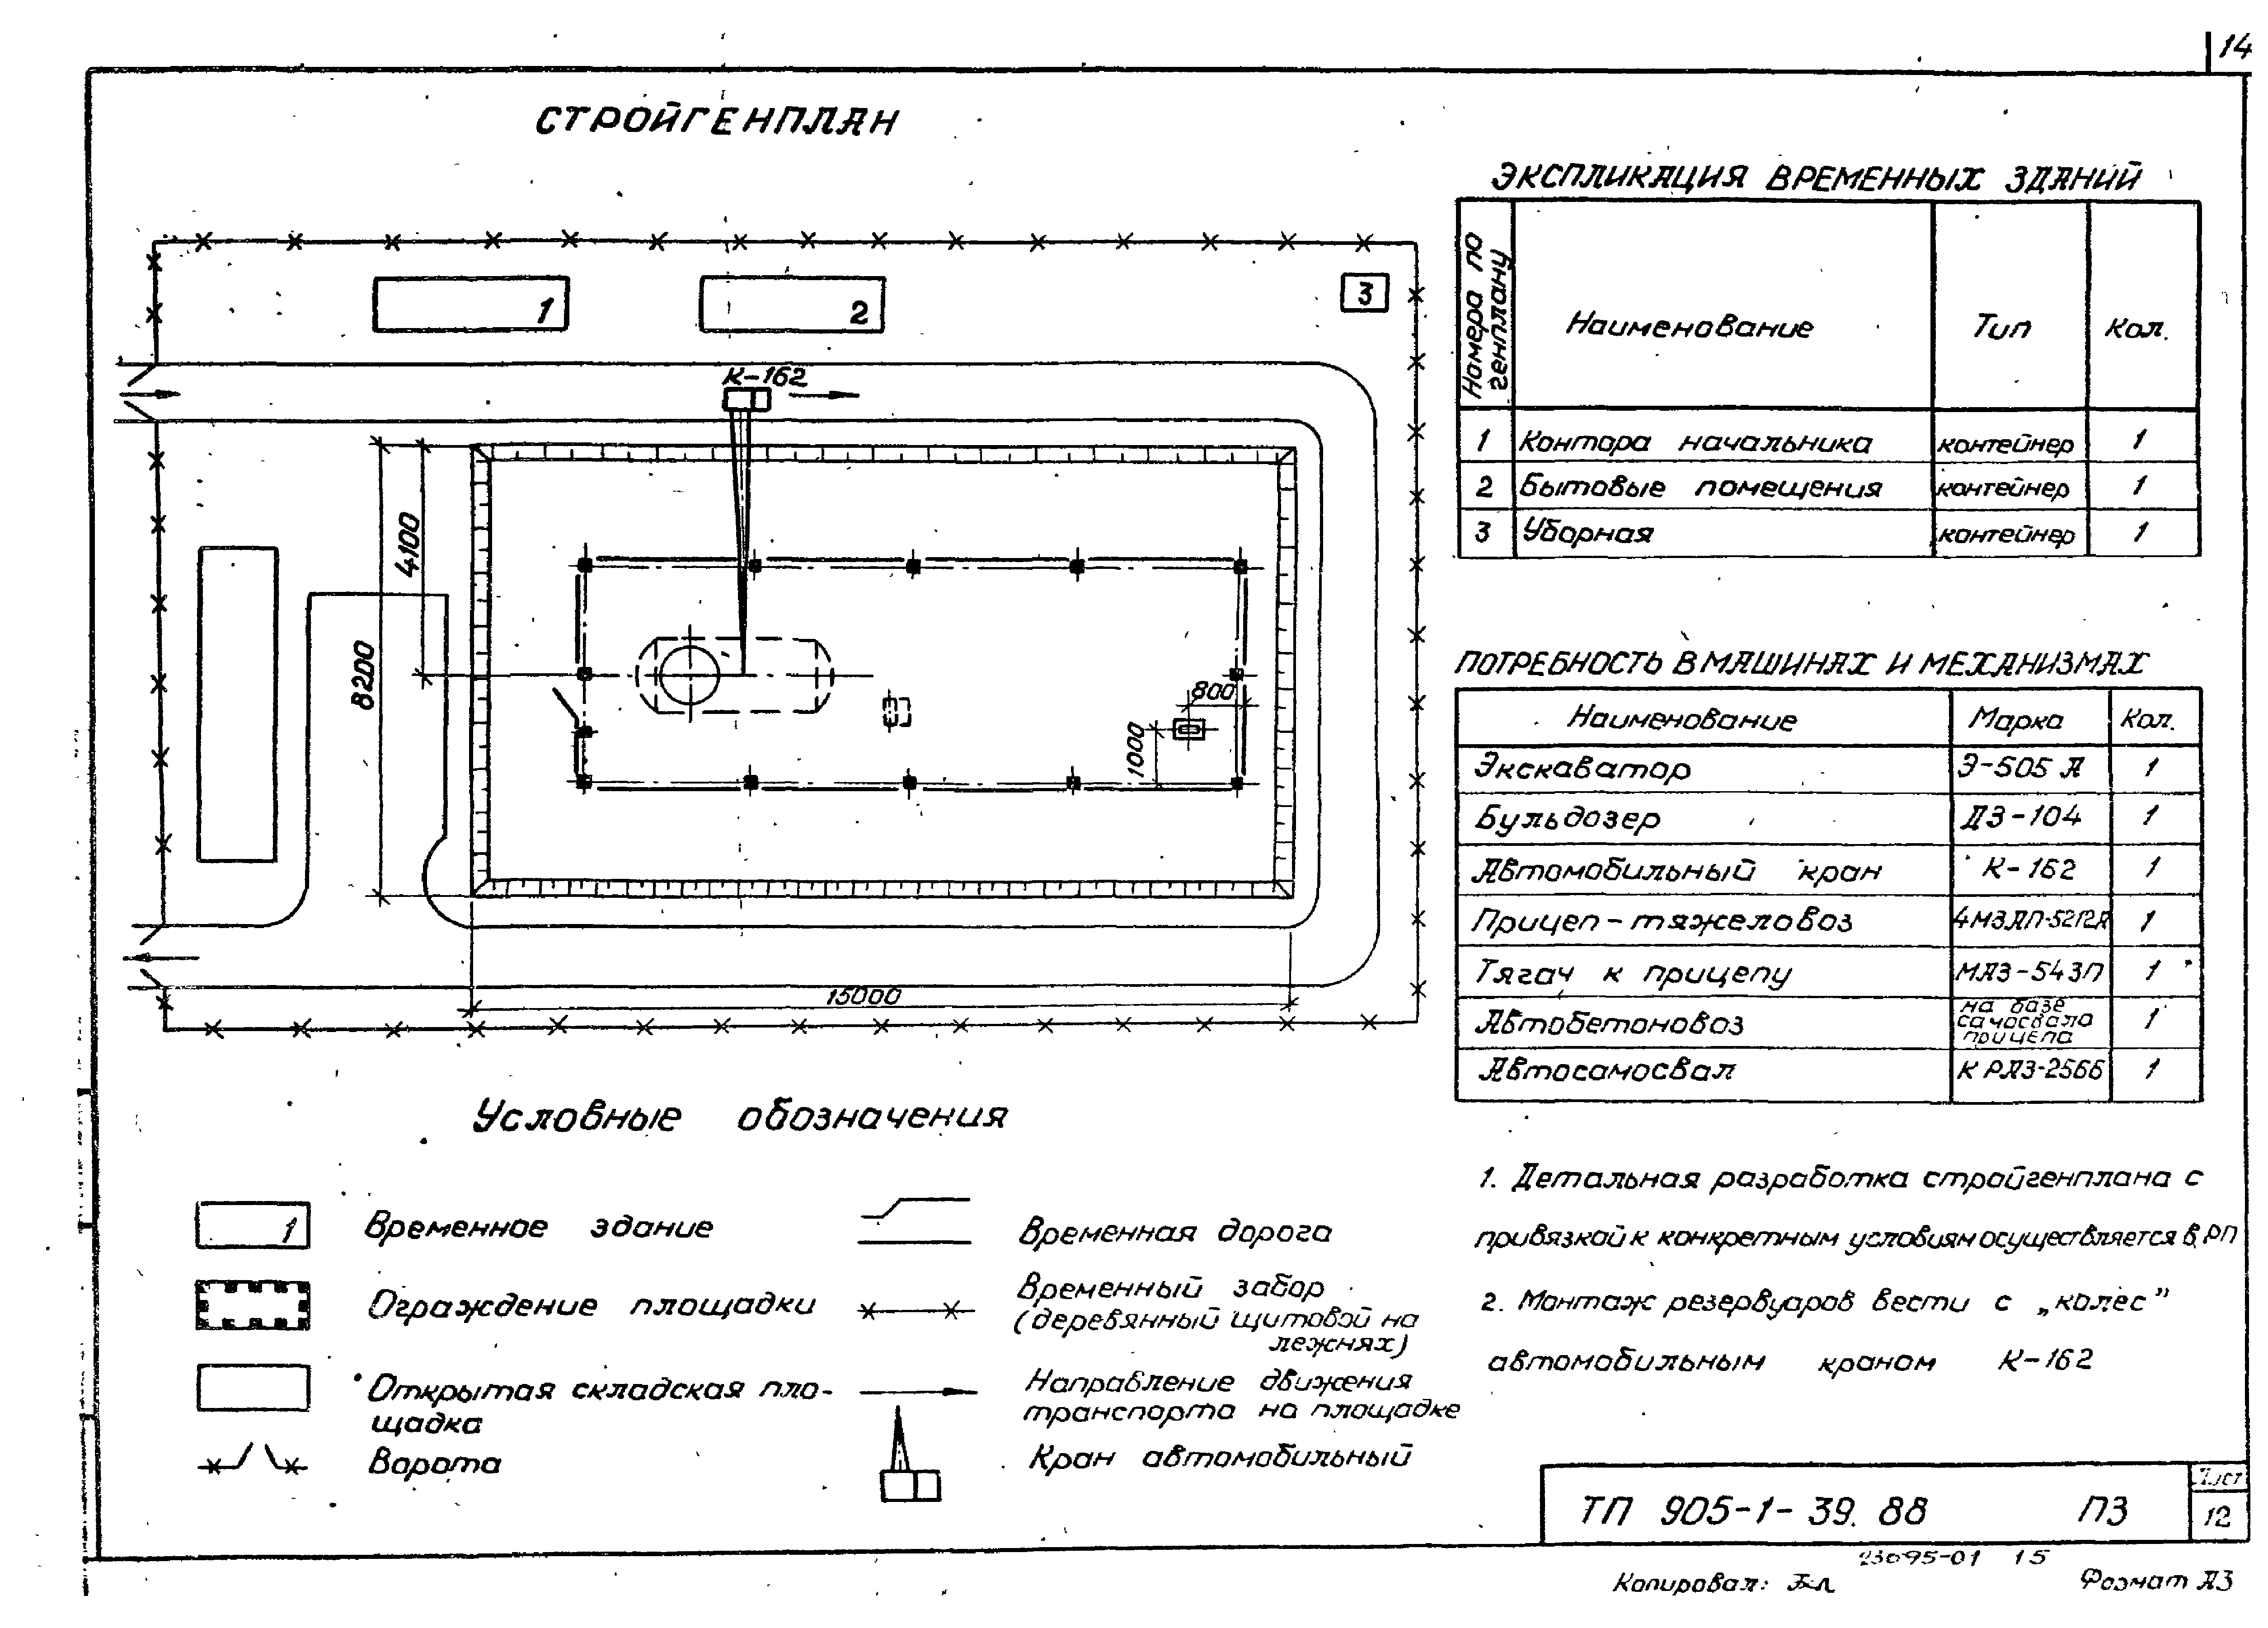 14
СТРОЙГЕНПЛАН
1
2
3
К-162
4100
8200
800
1000
15000
ЭКСПЛИКАЦИЯ ВРЕМЕННЫХ ЗДАНИЙ
Номера по генплану
Наименование
Тип
Кол.
1 Контора начальника контейнер 1
2 Бытовые помещения контейнер 1
3 Уборная контейнер 1
ПОТРЕБНОСТЬ В МАШИНАХ И МЕХАНИЗМАХ
Наименование Марка Кол.
Экскаватор Э-505 А 1
Бульдозер ДЗ-104 1
Автомобильный кран К-162 1
Прицеп-тяжеловоз 4МЗАП-5212А 1
Тягач к прицепу МАЗ-543П 1
Автобетоновоз на базе самосвала прицепа 1
Автосамосвал КРАЗ-256Б 1
Условные обозначения
1 Временное здание
Ограждение площадки
Открытая складская пло-
щадка
Ворота
Временная дорога
Временный забор
(деревянный щитовой на
лежнях)
Направление движения
транспорта на площадке
Кран автомобильный
1. Детальная разработка стройгенплана с
привязкой к конкретным условиям осуществляется в РП
2. Монтаж резервуаров вести с „колес”
автомобильным краном К-162
ТП 905-1-39.88 ПЗ
Лист
12
23095-01 15
Копировал:
Формат А3